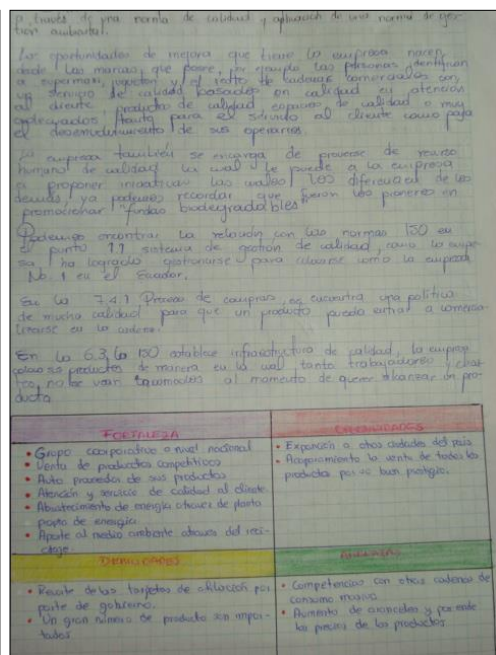 a través de una norma de calidad y aplicación de una norma de ges-
tion ambiental.
Las oportunidades de mejora que tiene la empresa nacen
desde las marcas que posee, por ejemplo las personas identifican
a supermaxi, jugueton y el resto de cadenas comerciales con
un servicio de calidad basados en calidad en atención
al cliente, productos de calidad, espacios de calidad o muy
adecuados tanto para el servicio al cliente como para
el desenvolvimiento de sus operarios.
La empresa también se encarga de proveerse de recurso
humano de calidad lo cual le puede a la empresa
a proponer iniciativas las cuales los diferencia de los
demás, ya podemos recordar que fueron los pioneros en
promocionar "fundas biodegradables".
Podemos encontrar la relación con las normas ISO en
el punto 1.1 sistema de gestión de calidad, como la empre
sa ha logrado gestionarse para colocarse como la empresa
No. 1 en el Ecuador.
En la 7.4.1 Proceso de compras, se encuentra una política
de mucha calidad para que un producto pueda entrar a comercia-
lizarse en la cadena.
En la 6.3 la ISO establece infraestructura de calidad, la empresa
coloca sus productos de manera en la cual tanto trabajadores y clien-
tes, no se vean incomodos al momento de querer alcanzar un pro-
ducto.
FORTALEZA
• Grupo coorporativo a nivel nacional
• Venta de productos competitivos
• Auto proveedor de sus productos
• Atención y servicio de calidad al cliente.
• Abastecimiento de energía atraves de planta
propia de energía
• Aporte al medio ambiente atraves del reci-
claje.
OPORTUNIDADES
• Expanción a otras ciudades del país
• la venta de todos los
productos por su buen prestigio.
DEBILIDADES
• de las tarjetas de afiliación por
parte de gobierno.
• Un gran número de producto son impor-
tados
AMENAZAS
• Competencias con otras cadenas de
consumo masivo
• Aumento de aranceles y por ende
los precios de los productos.